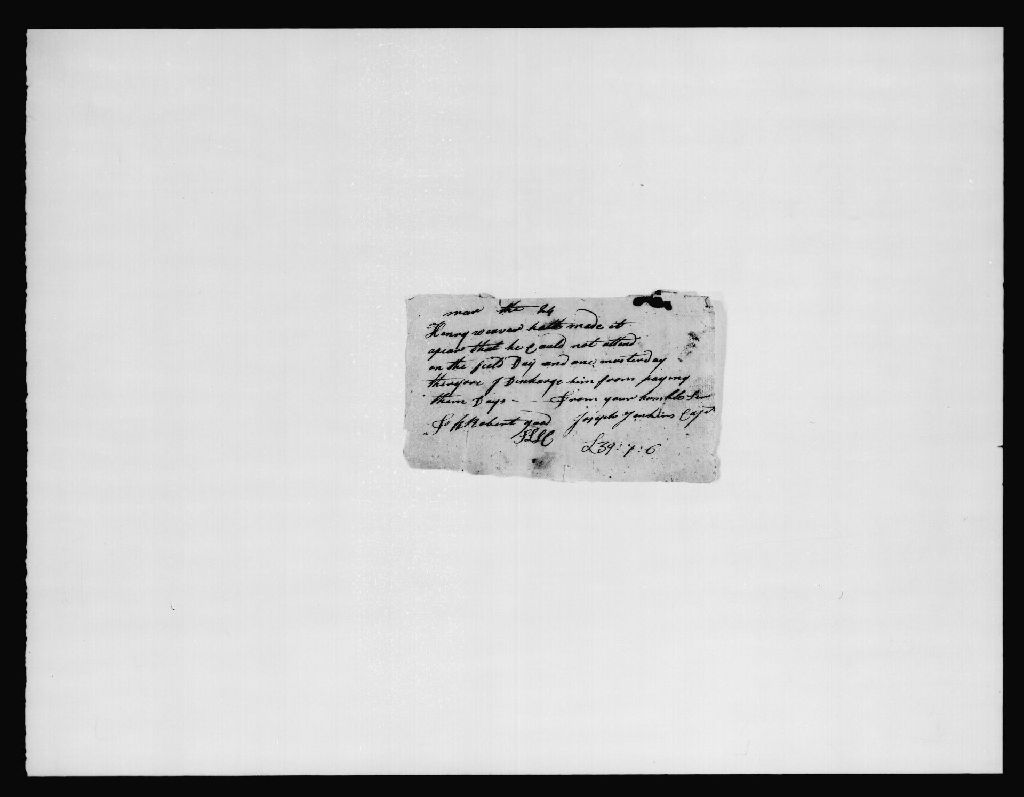 mar the 24
Henry weaver hath made it
apear that he Could not attend
on the field Day and one musterday
therefore I Discharge him from paying
them Days - From your homble Sr
To Robert good Joseph Jenkins Capt
£39: 7: 6